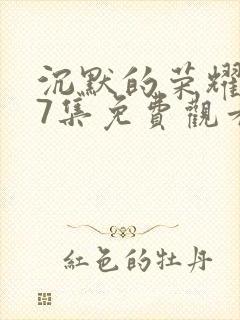 沉默的荣耀
7集免費觀
紅色的牡丹